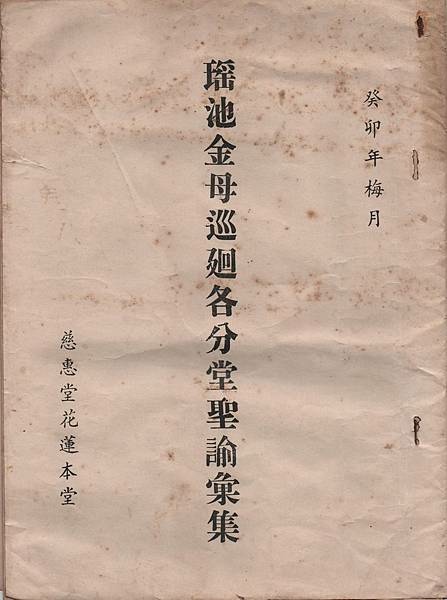 癸卯年梅月
瑶池金母巡廻各分堂聖諭彙集
慈惠堂花蓮本堂